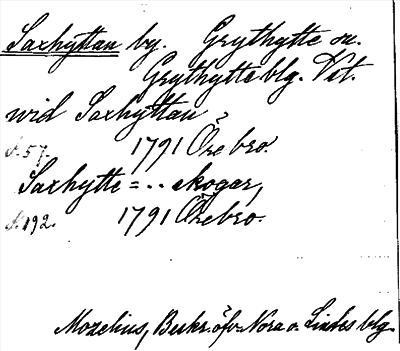 Saxhyttan by. Grythytte sn.
Grythytte blg. Vit.
wid Saxhyttan
s. 57. 1791 Örebro.
Saxhytte = .. skogar,
s. 192. 1791 Örebro.
Mozelius, Beskr. öfv. Nora o. Lindes blg.